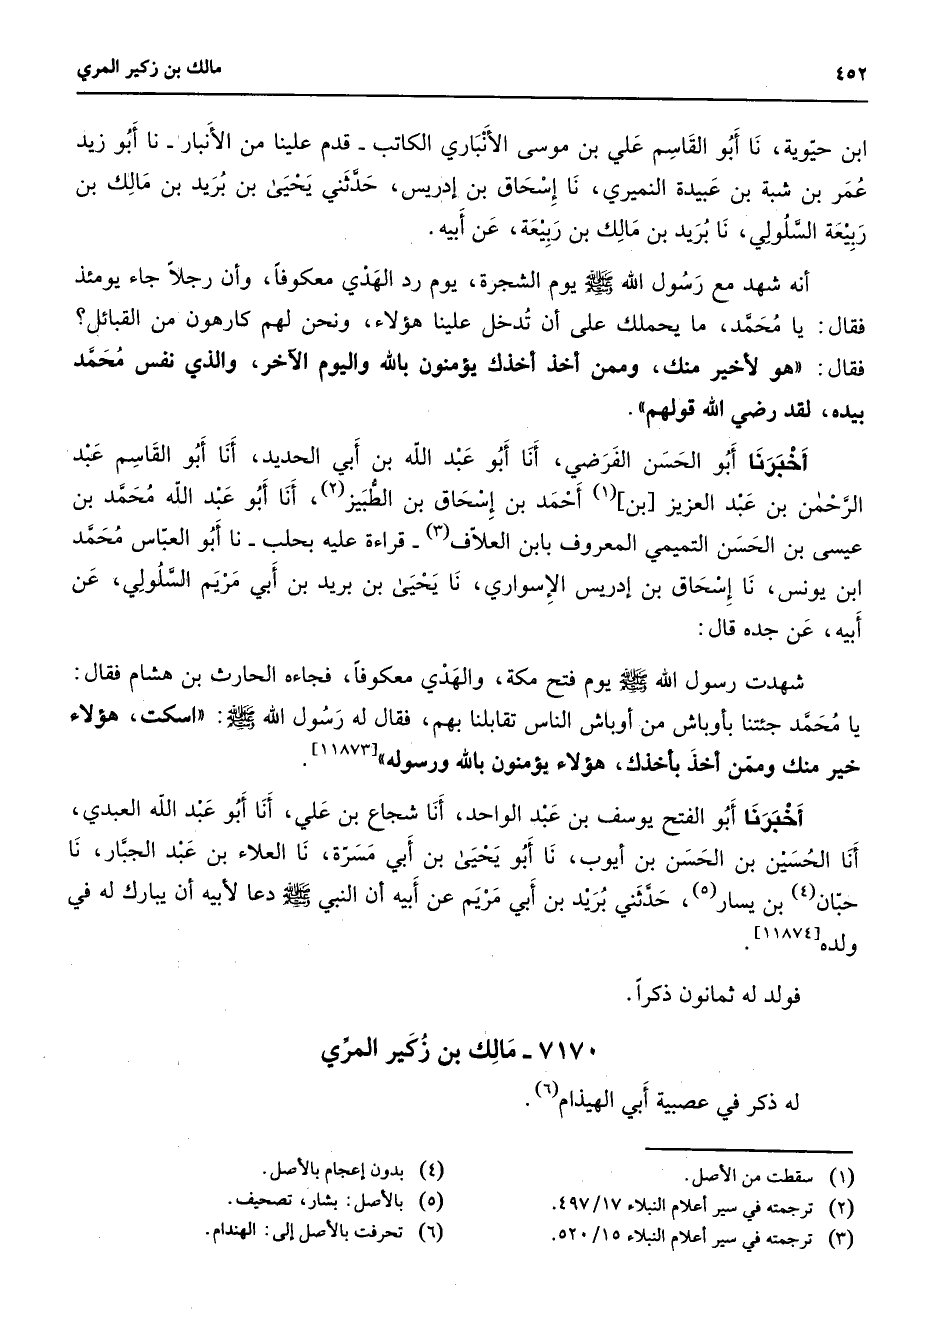 ٤٥٢ مالك بن زكير المري
ابن حيّوية، نَا أَبُو القَاسِم عَلي بن موسى الأَنْبَاري الكاتب ـ قدم علينا من الأَنبار ـ نا أَبُو زيد
عُمَر بن شبة بن عَبيدة النميري، نَا إِسْحَاق بن إدريس، حَدَّثَني يَحْيَىٰ بن بُرَيد بن مَالِك بن
رَبِيْعَة السَّلُولي، نَا بُرَيد بن مَالِك بن رَبِيْعَة، عَن أَبيه.
أنه شهد مع رَسُول الله ﷺ يوم الشجرة، يوم رد الهَدْي معكوفاً، وأن رجلاً جاء يومئذ
فقال: يا مُحَمَّد، ما يحملك على أن تُدخل علينا هؤلاء، ونحن لهم كارهون من القبائل؟
فقال: «هو لأخير منك، وممن أخذ أخذك يؤمنون بالله واليوم الآخر، والذي نفس مُحَمَّد
بيده، لقد رضي الله قولهم».
أَخْبَرَنَا أَبُو الحَسَن الفَرَضي، أَنَا أَبُو عَبْد الله بن أَبي الحديد، أَنَا أَبُو القَاسِم عَبْد
الرَّحْمٰن بن عَبْد العزيز [بن](١) أَحْمَد بن إِسْحَاق بن الطُّبَيز(٢)، أَنَا أَبُو عَبْد الله مُحَمَّد بن
عيسى بن الحَسَن التميمي المعروف بابن العلاّف(٣) ـ قراءة عليه بحلب ـ نا أَبُو العبّاس مُحَمَّد
ابن يونس، نَا إِسْحَاق بن إدريس الإسواري، نَا يَحْيَىٰ بن بريد بن أَبي مَرْيَم السَّلُولي، عَن
أَبيه، عَن جده قال:
شهدت رسول الله ﷺ يوم فتح مكة، والهَدْي معكوفاً، فجاءه الحارث بن هشام فقال:
يا مُحَمَّد جئتنا بأوباش من أوباش الناس تقابلنا بهم، فقال له رَسُول الله ﷺ: «اسكت، هؤلاء
خير منك وممّن أخذَ بأخذك، هؤلاء يؤمنون بالله ورسوله»[١١٨٧٣].
أَخْبَرَنَا أَبُو الفتح يوسف بن عَبْد الواحد، أَنَا شجاع بن عَلي، أَنَا أَبُو عَبْد الله العبدي،
أَنَا الحُسَيْن بن الحَسَن بن أيوب، نَا أَبُو يَحْيَىٰ بن أَبي مَسَرّة، نَا العلاء بن عَبْد الجبَّار، نَا
حبّان(٤) بن يسار(٥)، حَدَّثَني بُرَيْد بن أَبي مَرْيَم عن أَبيه أن النبي ﷺ دعا لأبيه أن يبارك له في
ولده[١١٨٧٤].
فولد له ثمانون ذكراً.
٧١٧٠ ـ مَالِك بن زُكَير المرّي
له ذكر في عصبية أَبي الهيذام(٦).
(١) سقطت من الأصل.
(٢) ترجمته في سير أعلام النبلاء ١٧/ ٤٩٧.
(٣) ترجمته في سير أعلام النبلاء ١٥/ ٥٢٠.
(٤) بدون إعجام بالأصل.
(٥) بالأصل: بشار، تصحيف.
(٦) تحرفت بالأصل إلى: الهندام.